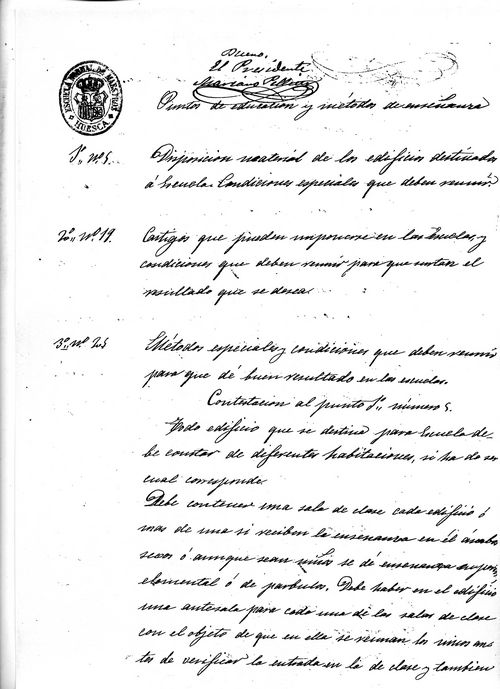 Bueno,
El Presidente
Mariano
ESCUELA NORMAL DE MAESTROS
HUESCA
Puntos de educacion y métodos de enseñanza
1º. nº 5. Disposicion material de los edificios destinados
á Escuela. Condiciones especiales que deben reunir.
2º. nº 19. Castigos que pueden imponerse en las Escuelas, y
condiciones que deben reunir para que surtan el
resultado que se desea.
3º. nº 25 Métodos especiales y condiciones que deben reunir
para que dé buen resultado en las escuelas.
Contestacion al punto 1º. número 5.
Todo edificio que se destina para Escuela de-
be constar de diferentes habitaciones, si ha de ser
cual corresponde.
Debe contener una sala de clase cada edificio ó
mas de una si reciben la enseñanza en él ámbos
secsos ó aunque sean niños se dé enseñanza
elemental ó de parbulos. Debe haber en el edificio
una antesala para cada una de las salas de clase
con el objeto de que en ella se reunan los niños an-
tes de verificar la entrada en la de clase y tambien